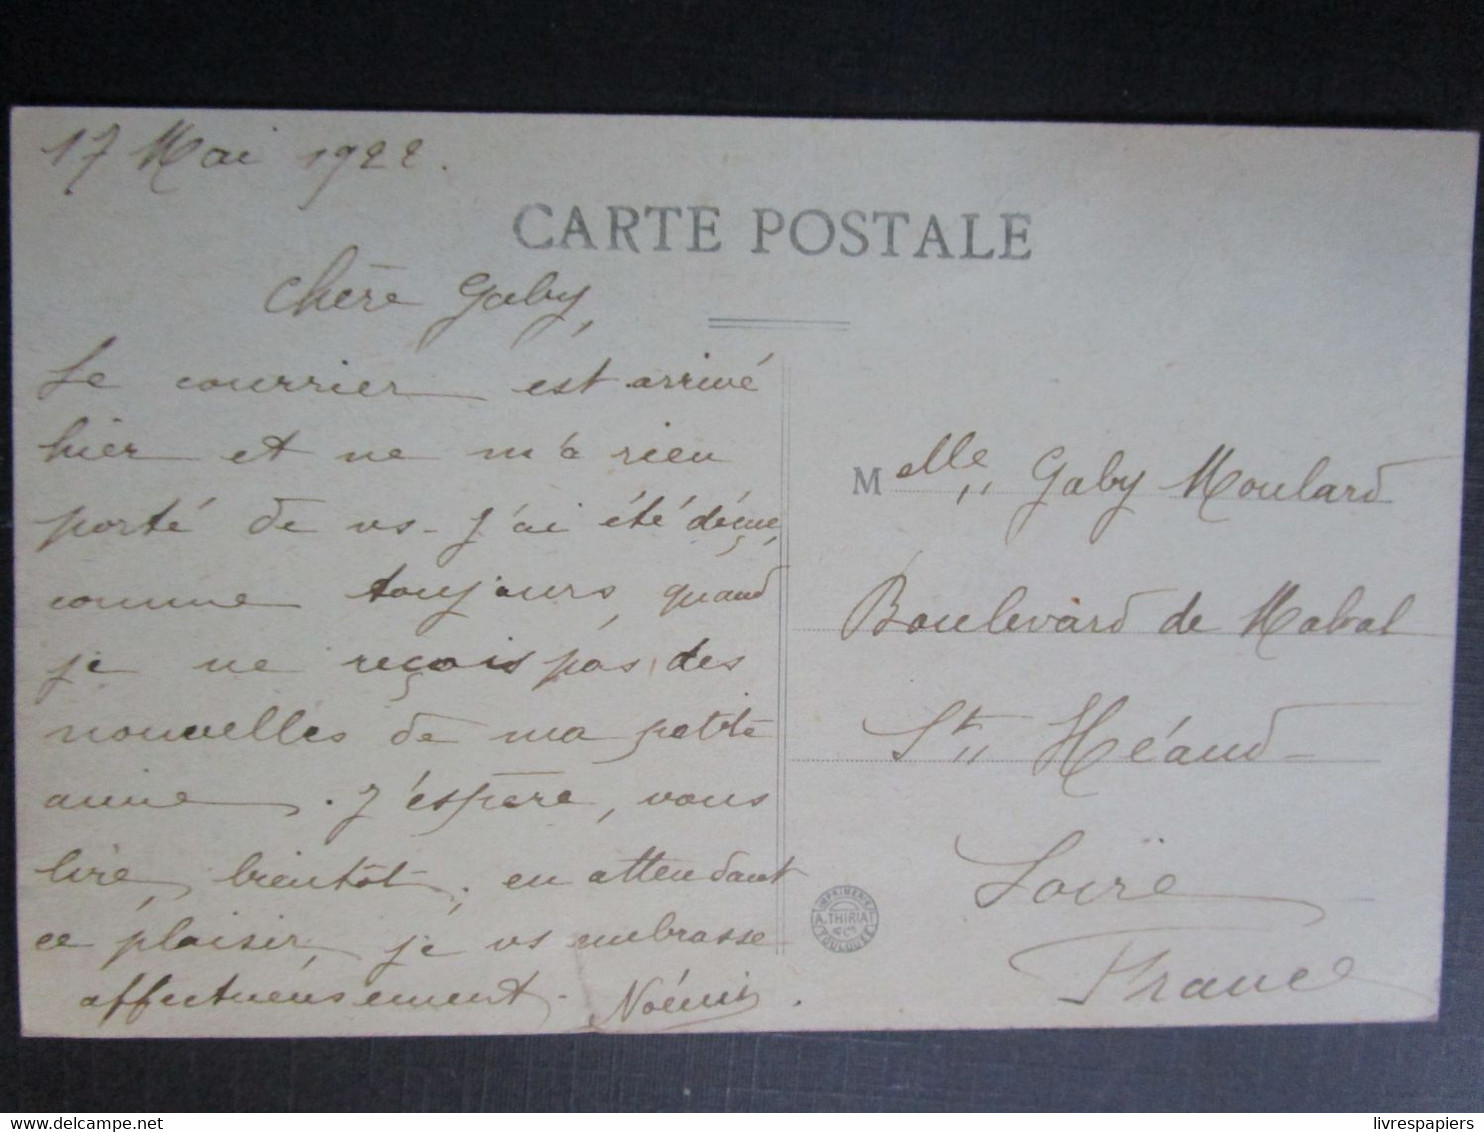 17 Mai 1922.
CARTE POSTALE
Chère Gaby,
Le courrier est arrivé
hier et ne m'a rien
porté de vs - J'ai été déçue,
comme toujours, quand
je ne reçois pas des
nouvelles de ma petite
amie. J'espère, vous
lire, bientôt, en attendant
ce plaisir, je vs embrasse
affectueusement - Noémie.
Melle Gaby Moulard
Boulevard de
St Héand
Loire
France
IMPRIMERIE
A. THIRIAT
& Cie
TOULOUSE
livrespapiers.com